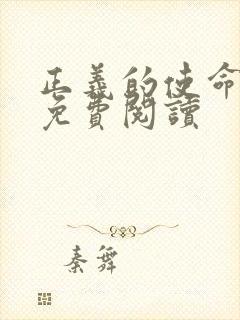 正義的使命
免費閱讀
秦舞